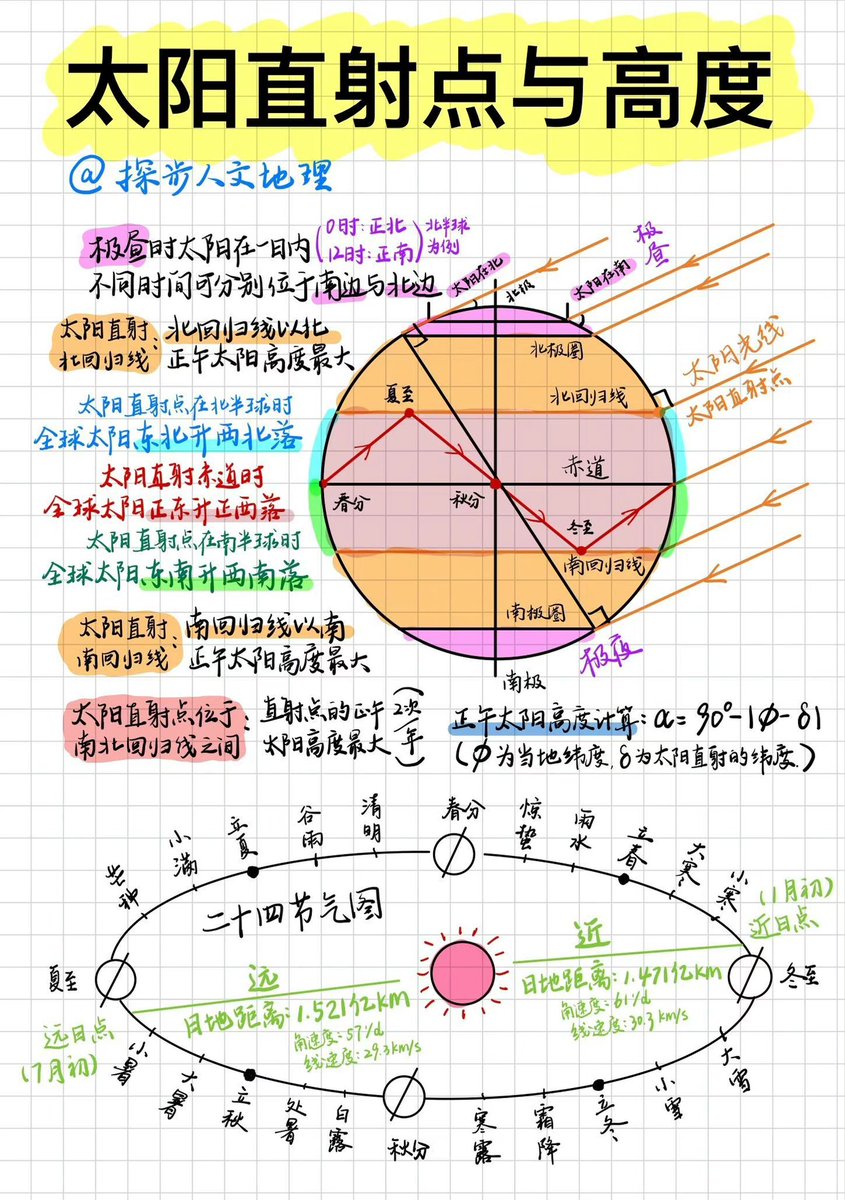 太阳直射点与高度
@探步人文地理
极昼时太阳在一日内(0时:正北 12时:正南)北半球为例
不同时间可分别位于南边与北边
太阳直射北回归线:北回归线以北
正午太阳高度最大
太阳直射点在北半球时
全球太阳东北升西北落
太阳直射赤道时
全球太阳正东升正西落
太阳直射点在南半球时
全球太阳东南升西南落
太阳直射南回归线:南回归线以南
正午太阳高度最大
太阳直射点位于南北回归线之间:直射点的正午
太阳高度最大(2次/年)
太阳在北
北极
太阳在南
极昼
北极圈
太阳光线
太阳直射点
夏至
北回归线
赤道
春分
秋分
冬至
南回归线
南极圈
极夜
南极
正午太阳高度计算:α=90°-|φ-δ|
(φ为当地纬度,δ为太阳直射的纬度.)
二十四节气图
春分
清明
谷雨
立夏
小满
芒种
夏至
小暑
大暑
立秋
处暑
白露
秋分
寒露
霜降
立冬
小雪
大雪
冬至
小寒
大寒
立春
雨水
惊蛰
远
日地距离:1.521亿km
角速度:57'/d
线速度:29.3km/s
近
日地距离:1.471亿km
角速度:61'/d
线速度:30.3km/s
远日点
(7月初)
(1月初)
近日点